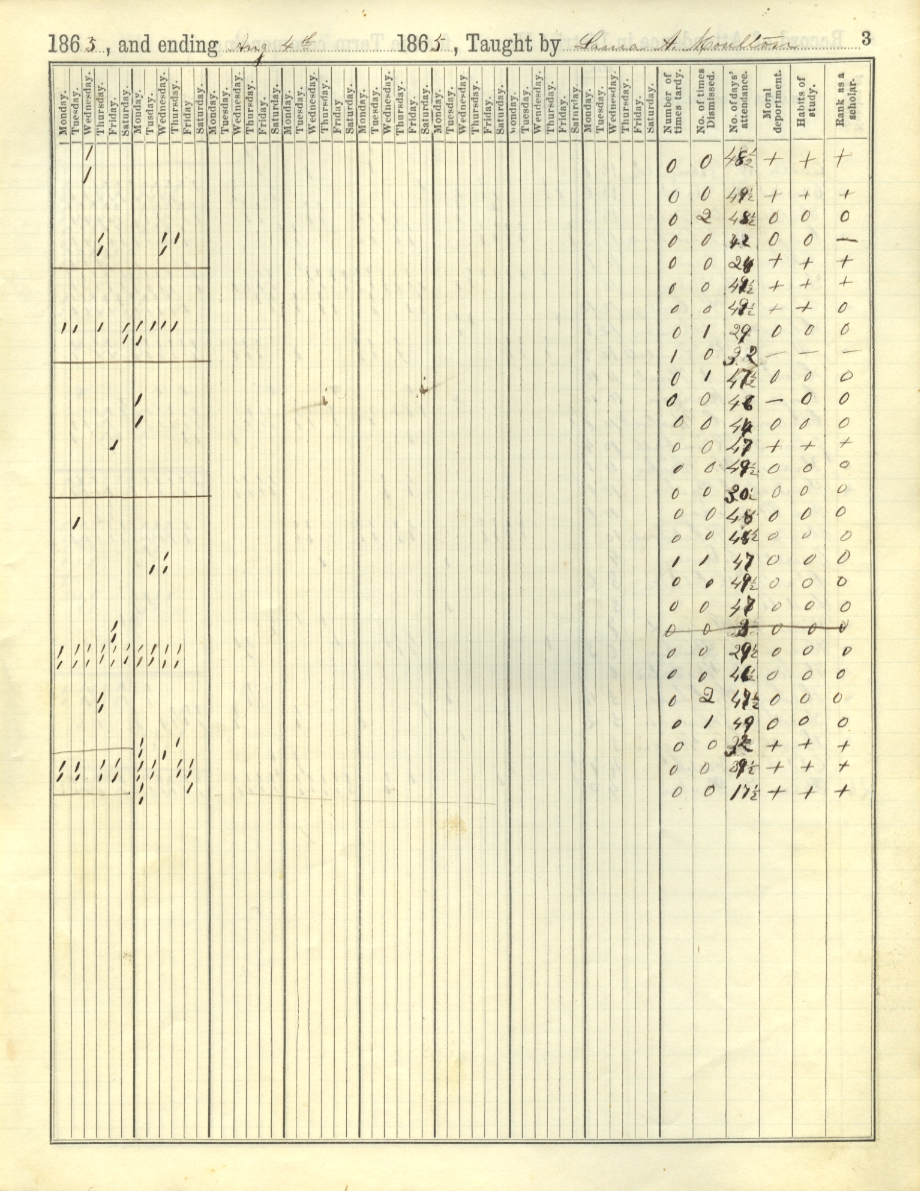 1865, and ending Aug 4th 1865, Taught by A. Moulton 3
Monday. Tuesday. Wednesday. Thursday. Friday. Saturday. Monday. Tuesday. Wednesday. Thursday. Friday. Saturday. Monday. Tuesday. Wednesday. Thursday. Friday. Saturday. Monday. Tuesday. Wednesday. Thursday. Friday. Saturday. Monday. Tuesday. Wednesday. Thursday. Friday. Saturday. Monday. Tuesday. Wednesday. Thursday. Friday. Saturday. Monday. Tuesday. Wednesday. Thursday. Friday. Saturday. Monday. Tuesday. Wednesday. Thursday. Friday. Saturday. Number of times tardy. No. of times Dismissed. No. of days' attendance. Moral deportment. Habits of study. Rank as a scholar.
0 0 48½ + + +
0 0 49½ + + +
0 2 48½ 0 0 0
0 0 42 0 0 —
0 0 24 + + +
0 0 49½ + + +
0 0 49½ + + 0
0 1 29 0 0 0
1 0 32 — — —
0 1 47½ 0 0 0
0 0 48 — 0 0
0 0 44 0 0 0
0 0 47 + + +
0 0 49½ 0 0 0
0 0 30½ 0 0 0
0 0 48 0 0 0
0 0 0 0 0
1 1 47 0 0 0
0 0 49½ 0 0 0
0 0 47 0 0 0
0 0 0 0 0
0 0 29½ 0 0 0
0 0 0 0 0
0 2 47½ 0 0 0
0 1 49 0 0 0
0 0 + + +
0 0 39½ + + +
0 0 17½ + + +